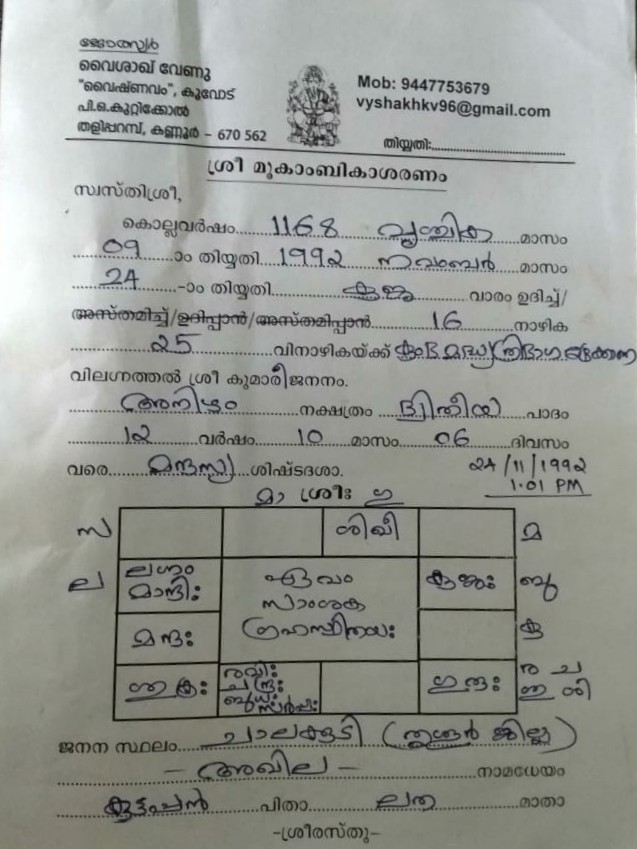 ജ്യോത്സ്യർ
വൈശാഖ് വേണു
"വൈഷ്ണവം", കൂവോട്
പി.ഒ.കുറ്റിക്കോൽ
തളിപ്പറമ്പ്, കണ്ണൂർ – 670 562
Mob: 9447753679
vyshakhkv96@gmail.com
തിയ്യതി:
ശ്രീ മൂകാംബികാശരണം
സ്വസ്തിശ്രീ,
കൊല്ലവർഷം 1168 വൃശ്ചിക മാസം
09 ാം തിയ്യതി 1992 നവംബർ മാസം
24 -ാം തിയ്യതി കുജ വാരം ഉദിച്ച്/
അസ്തമിച്ച്/ഉദിപ്പാൻ/അസ്തമിപ്പാൻ 16 നാഴിക
25 വിനാഴികയ്ക്ക് കുംഭ മദ്ധ്യത്രിഭാഗ
വിലഗ്നത്തൽ ശ്രീ കുമാരീജനനം.
അനിഴം നക്ഷത്രം ദ്വിതീയ പാദം
12 വർഷം 10 മാസം 06 ദിവസം
വരെ മന്ദസ്യ ശിഷ്ടദശാ.
24/11/1992
1.01 PM
മാ ശ്രീഃ ഗു
സ ശിഖീ മ
ല ലഗ്നം മാന്ദിഃ ഏവം കുജഃ ബു
സാംശക
മന്ദഃ ഗ്രഹസ്ഥിതയഃ കു
ശുക്രഃ രവിഃ ചന്ദ്രഃ ഗുരുഃ ര ച
ബുധഃ സർപ്പഃ ശു ശി
ജനന സ്ഥലം ചാലകുടി (തൃശൂർ ജില്ല)
– അഖില – നാമധേയം
കുട്ടപ്പൻ പിതാ ലത മാതാ
-ശ്രീരസ്തു-